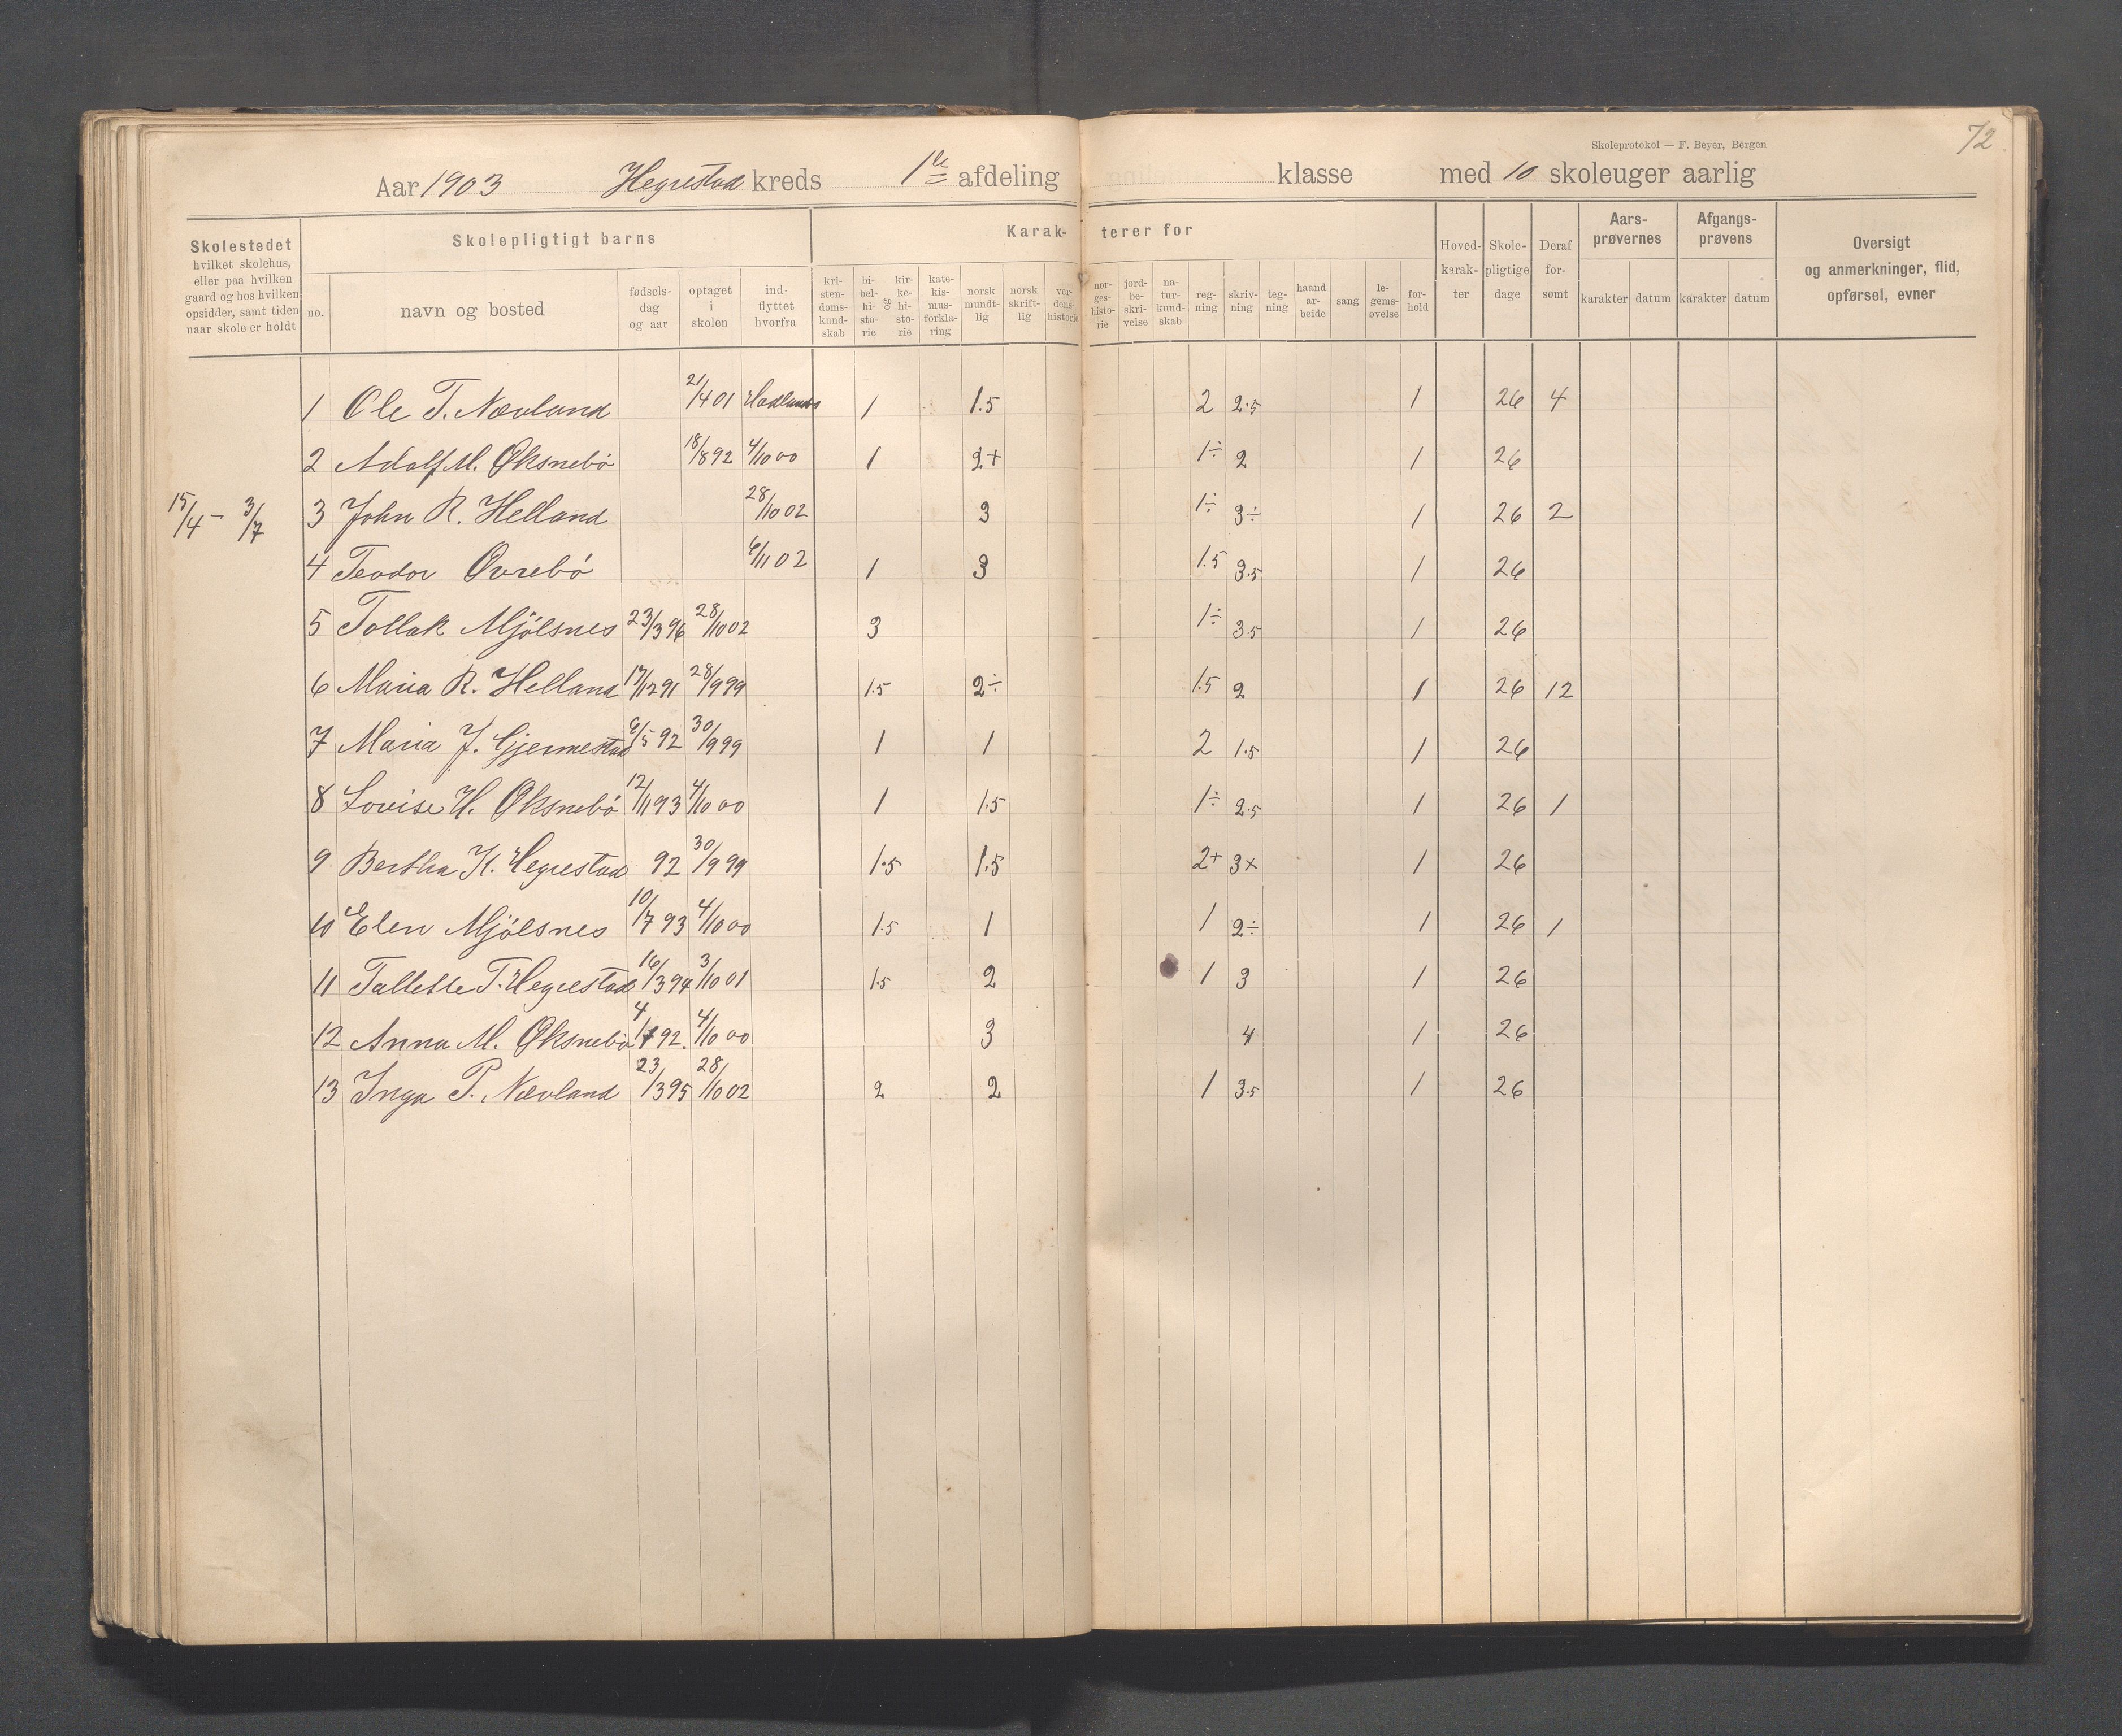 72
Skoleprotokol — F. Beyer, Bergen
Aar 1903 Hegrestad kreds 1ste afdeling klasse med 10 skoleuger aarlig
Skolestedet
hvilket skolehus,
eller paa hvilken
gaard og hos hvilken
opsidder, samt tiden
naar skole er holdt
Skolepligtigt barns
no.
navn og bosted
fødsels-
dag
og aar
optaget
i
skolen
ind-
flyttet
hvorfra
Karak- terer for
kri-
sten-
doms-
kund-
skab
bi-
bel-
hi-
sto-
rie
og
kir-
ke-
hi-
sto-
rie
kate-
kis-
mus-
forkla-
ring
norsk
mundt-
lig
norsk
skrift-
lig
ver-
dens-
historie
nor-
ges-
histo-
rie
jord-
be-
skri-
velse
na-
tur-
kund-
skab
reg-
ning
skriv-
ning
teg-
ning
haand
ar-
beide
sang
le-
gems-
øvelse
for-
hold
Hoved-
karak-
ter
Skole-
pligtige
dage
Deraf
for-
sømt
Aars-
prøvernes
karakter datum
Afgangs-
prøvens
karakter datum
Oversigt
og anmerkninger, flid,
opførsel, evner
1 Ole T. Nævland 21/4 01 1 1.5 2 2.5 1 26 4
2 Adolf M. Øksnebö 18/8 92 4/10 00 1 2+ 1÷ 2 1 26
15/4 - 3/7 3 John R. Helland 28/10 02 3 1÷ 3÷ 1 26 2
4 Teodor Øvrebö 6/11 02 1 3 1.5 3.5 1 26
5 Tollak Mjölsnes 23/3 96 28/10 02 3 1÷ 3.5 1 26
6 Maria R. Helland 17/12 91 28/9 99 1.5 2÷ 1.5 2 1 26 12
7 Maria J. Gjermestad 6/5 92 30/9 99 1 1 2 1.5 1 26
8 Lovise H. Øksnebö 12/11 93 4/10 00 1 1.5 1÷ 2.5 1 26 1
9 Bertha K. Hegrestad 92 30/9 99 1.5 1.5 2+ 3+ 1 26
10 Elen Mjölsnes 10/7 93 4/10 00 1.5 1 1 2÷ 1 26 1
11 Tallette T. Hegrestad 16/3 94 3/10 01 1.5 2 1 3 1 26
12 Anna M. Øksnebö 92. 4/10 00 3 4 1 26
13 Inga P. Nævland 23/3 95 28/10 02 2 2 1 3.5 1 26